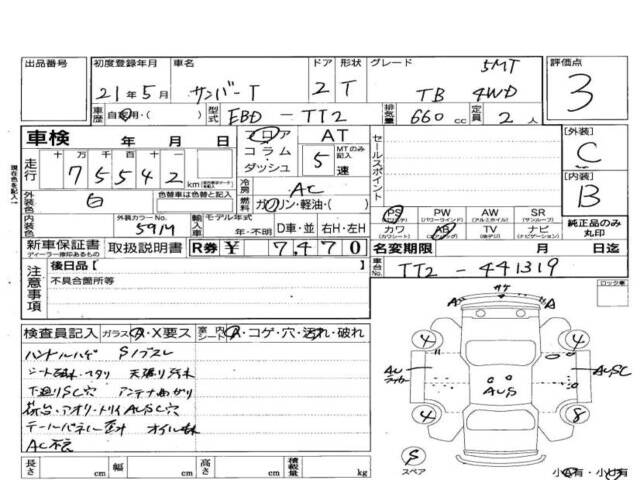 出品番号 初度登録年月 車名 ドア 形状 グレード 評価点
21年5月 サンバーT 2 T TB 4WD 5MT 3
車歴 自家用・( ) 型式 EBD - TT2 排気量 660cc 定員 2人
車検 年 月 日 フロア AT
コラム MTのみ記入
ダッシュ 5速
セールスポイント
[外装] C
[内装] B
走行 十万千百十 75542 km
現在色を記入
外装色 白 色替車は色替と記入
冷房 AC
燃料 ガソリン・軽油・( )
内装色 外装カラーNo. 591M
輸入車 モデル年式 年・不明 D車・並 右H・左H
PS PW AW SR
(パワステ) (パワーウインド) (アルミホイル) (サンルーフ)
カワ AB TV ナビ
(カワシート) (エアバッグ) (地デジ) (ナビゲーション)
純正品のみ丸印
新車保証書 取扱説明書 R券 ¥ 7,470
ディーラー捺印あるもの
名変期限 月 日迄
注意事項
後日品[ ]
不具合箇所等
車台No. TT2-441319
ロック車
検査員記入 ガラス A・X要ス 室内シート A・コゲ・穴・汚れ・破れ
ハンドルハゲ Sノブスレ
下廻りSC穴
荷台・アオリ・トリイAUSC穴
AC不良
長さ cm 幅 cm 高さ cm 積載量 kg
サケ
A A
4 4
AUSC
AUS
4 8
S
スペア
小 有・小 有